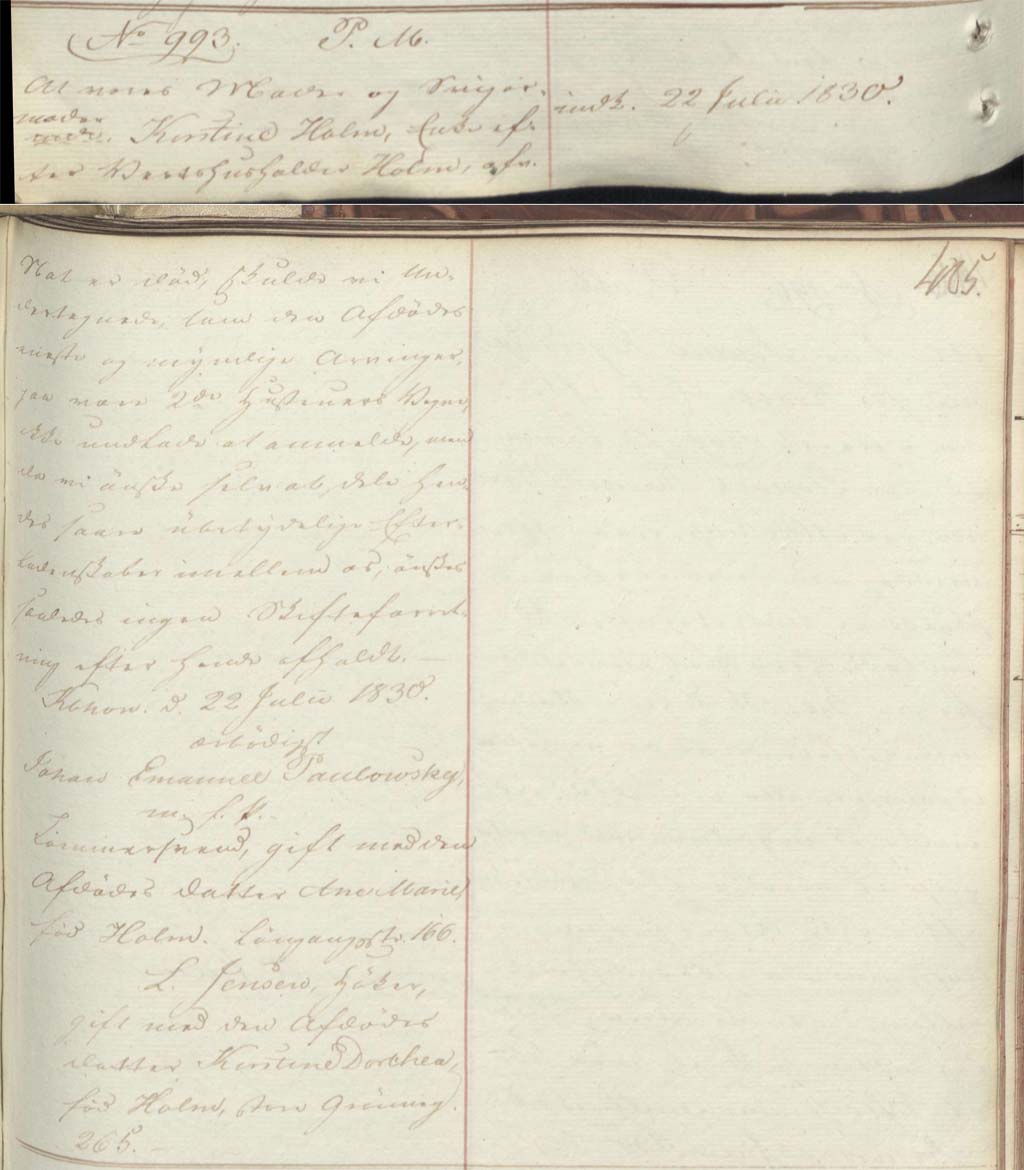 No 993. P. M.
At vores Moder og Sviger-
moder Kirstine Holm, Enke ef-
ter Vertshusholder Holm, afv.
indk. 22 Julii 1830.
405.
Nat er död, skulde vi Un-
dertegnede, som den Afdödes
neste og myndige Arvinger,
paa vore 2de Hustruers Vegne,
ikke undlade at anmelde, men
da vi önske selv at dele Hen-
des saare übetydelige Efter-
ladenskaber imellem os, önskes
saaledes ingen Skifteforret-
ning efter Hende afholdt. —
Kbhavn. d. 22 Julii 1830.
ærbödigst
Johan Emanuel Paulowsky,
m. f. P.
Tömmersvend, gift med den
Afdödes Datter Ane Marie,
föd Holm. Löngangstr. 166.
L. Jensen, Höker,
gift med den Afdödes
Datter Kirstine Dorthea,
föd Holm, store Grönneg.
265. —